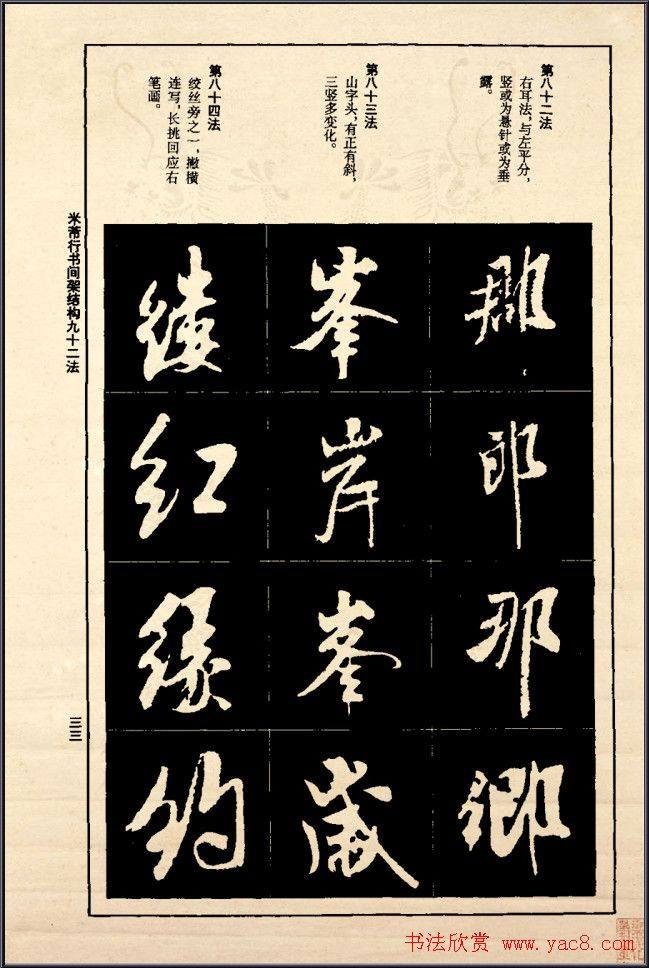 第八十二法
右耳法，与左平分，
竖或为悬针或为垂
露。
第八十三法
山字头，有正有斜，
三竖多变化。
第八十四法
绞丝旁之一，撇横
连写，长挑回应右
笔画。
郎
那
峯
岸
峯
歲
红
缘
约
米芾行书间架结构九十二法
三三
书法欣赏 www.yac8.com